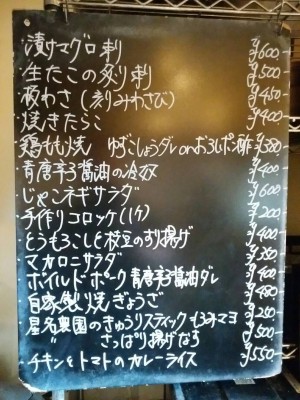 ・漬けマグロ刺 ¥600-
・生たこの炙り刺 ¥500-
・板わさ(刻みわさび) ¥450-
・焼きたらこ ¥400-
・鶏もも焼 ゆずこしょうダレ or おろしポン酢 ¥380-
・青唐辛子醤油の冷奴 ¥400-
・じゃこネギサラダ ¥600-
・手作りコロッケ(1ヶ) ¥200-
・とうもろこしと枝豆のすり揚げ ¥400-
・マカロニサラダ ¥350-
・ボイルドポーク 青唐辛子醤油ダレ ¥400-
・自家製焼ぎょうざ ¥480-
・星名農園のきゅうりスティック もろみマヨ ¥250-
・〃 さっぱり揚げなす ¥500-
・チキンとトマトのカレーライス ¥550-